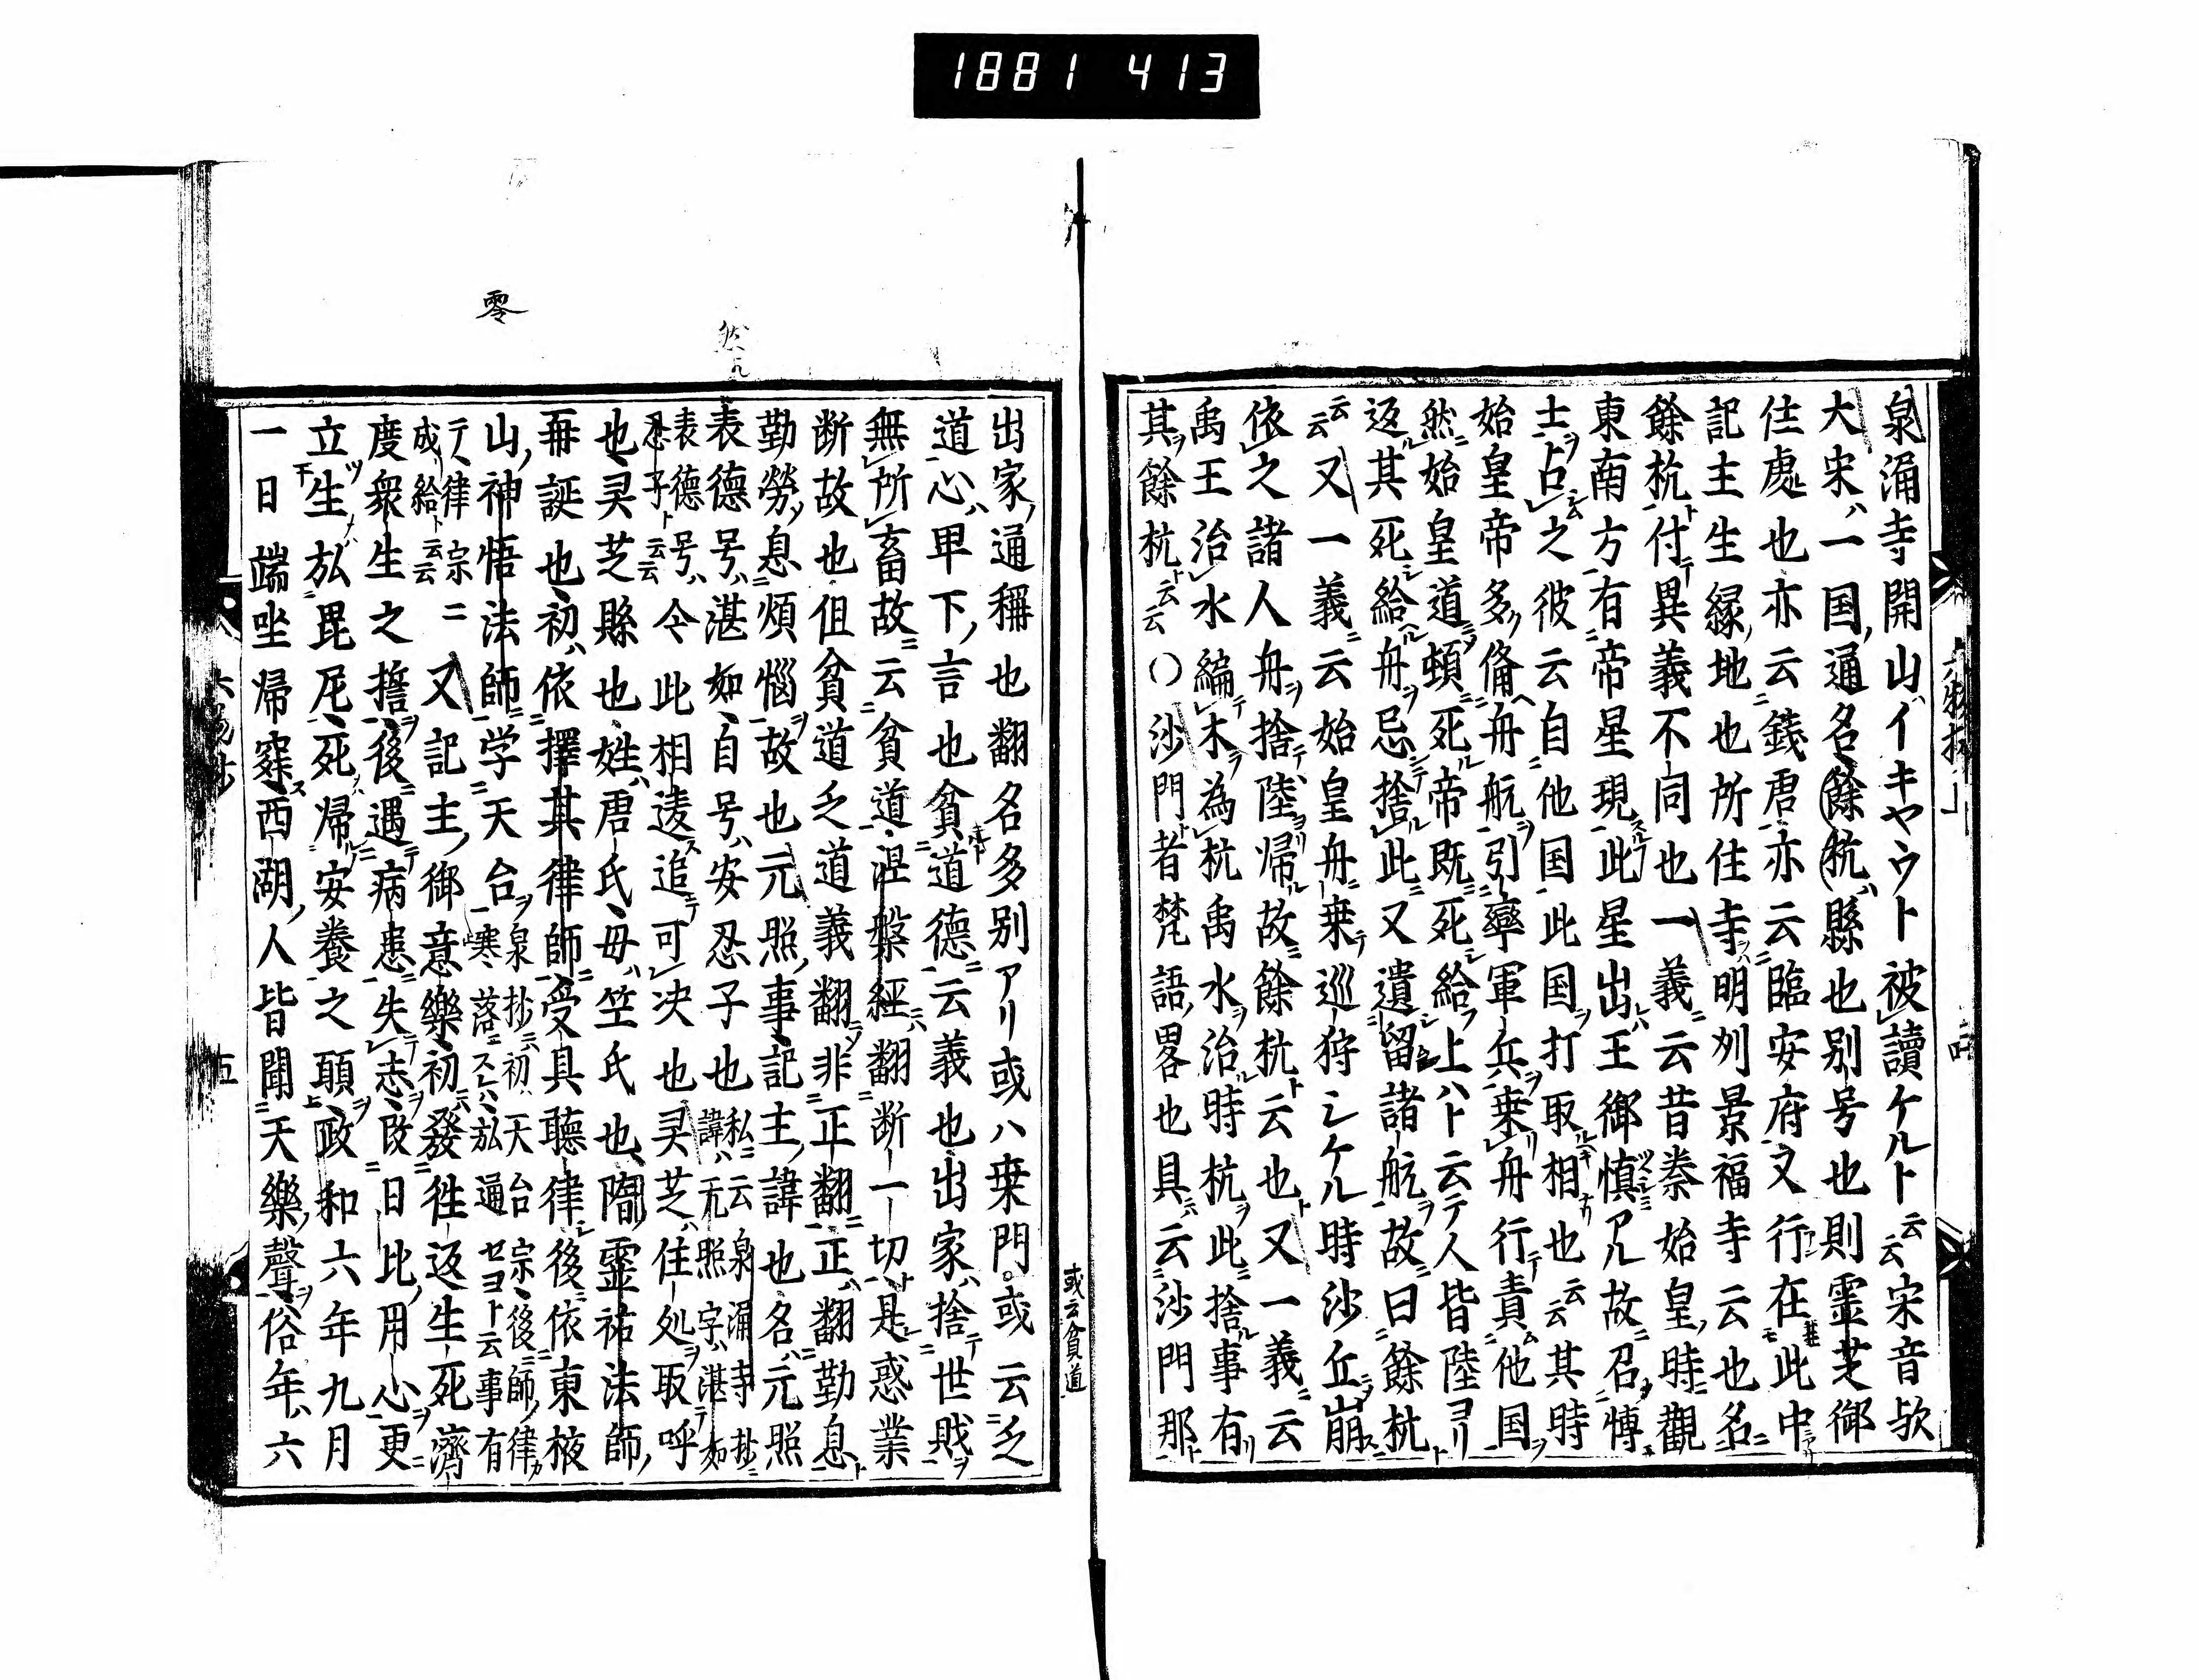 1881 413
泉涌寺開山ハイキヤウト被讀ケルト云云宋音歟
大宋ハ一国ノ通名餘杭ハ縣也別号也則霊芝御
住處也亦云錢君亦云臨安府又行在此中
記主生縁ノ地也所住寺明刕景福寺云也名
餘杭付異義不同也一義云昔秦始皇ノ時觀
東南方有帝星現此星出王御慎アル故召博
士占之彼云自他国此国打取相也云云其時
始皇帝多ノ俻舟航引率軍兵乗舟行責他国
然始皇道頓死帝既死給上ハト云テ人皆陸ヨリ
返其死給舟忌捨此又遺留諸航故曰餘杭
云云又一義云始皇舟乗巡狩シケル時沙丘崩
依之諸人舟捨陸帰故餘杭云也又一義云
禹王治水編木為杭禹水治時杭此捨事有
其餘杭云云〇沙門者梵語畧也具云沙門那
出家ノ通稱也翻名多別アリ或ハ桒門或云乏
道心ハ甲下ノ言也貧道德云義也出家ハ捨世戝
無所畜故云貧道涅槃經翻断一切是惑業
断故也但貧道乏道義翻非正翻正ハ翻勤息
勤勞息煩惱故也元照ノ事記主ノ諱也名ハ元照
表德号ハ湛如自号ハ安忍子也私云泉涌寺抄
諱ハ元照字ハ湛如
表德号ハ
忍子ト云云今此相違追可决也灵芝ハ住処取呼
也灵芝縣也姓ハ唐氏母ハ笁氏也隋霊祐法師ノ
再誕也初ハ依擇其律師受具聽律後依東掖
山ノ神悟法師学天台泉抄云初ハ天台宗後師ノ律
寒落スレハ弘通セヨト云事有
テ律宗ニ
成給ト云云又記主ノ御意樂初發徃返生死濟
度衆生之擔後遇病患失志改日比ノ用心更
立生弘毘尼死帰安養之願政和六年九月
一日端坐帰寂西湖ノ人皆聞天樂ノ聲俗年ハ六
或云貧道
零
五